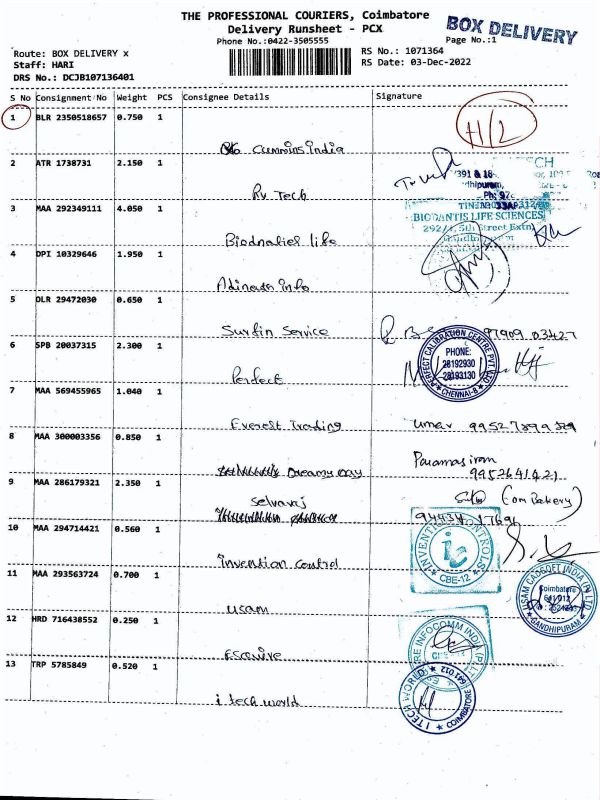 THE PROFESSIONAL COURIERS, Coimbatore
Delivery Runsheet - PCX
BOX DELIVERY
Phone No.:0422-3505555
Page No.:1
Route: BOX DELIVERY x
RS No.: 1071364
Staff: HARI
RS Date: 03-Dec-2022
DRS No.: DCJB107136401
S No Consignment/No Weight PCS Consignee Details Signature
1 BLR 2350518657 0.750 1
H/2
Cummins India
2 ATR 1738731 2.150 1
Rv Tech
3 MAA 292349111 4.050 1
BIODANTIS LIFE SCIENCES
life
4 DPI 10329646 1.950 1
Adinath info
5 DLR 29472030 0.650 1
Surfin Service
97909 03427
6 SPB 20037315 2.300 1
PERFECT CALIBRATION CENTRE PVT LTD
PHONE:
26192930
26193130
CHENNAI-8
Perfect
7 MAA 569455965 1.040 1
Everest Trading
Umar
8 MAA 300003356 0.850 1
Dreamy Day
9952641421
9 MAA 286179321 2.350 1
Selvaraj
(om Bakery)
10 MAA 294714421 0.560 1
INVENTION CONTROLS
ic
CBE-12
invention control
11 MAA 293563724 0.700 1
USAM CADSOFT INDIA (P) LTD
Coimbatore
641 012
GANDHIPURAM
usam
12 HRD 716438552 0.250 1
ESQUIRE INFOCOMM INDIA (P) LTD
Esquire
13 TRP 5785849 0.520 1
I TECH WORLD
641 012
COIMBATORE
i tech world